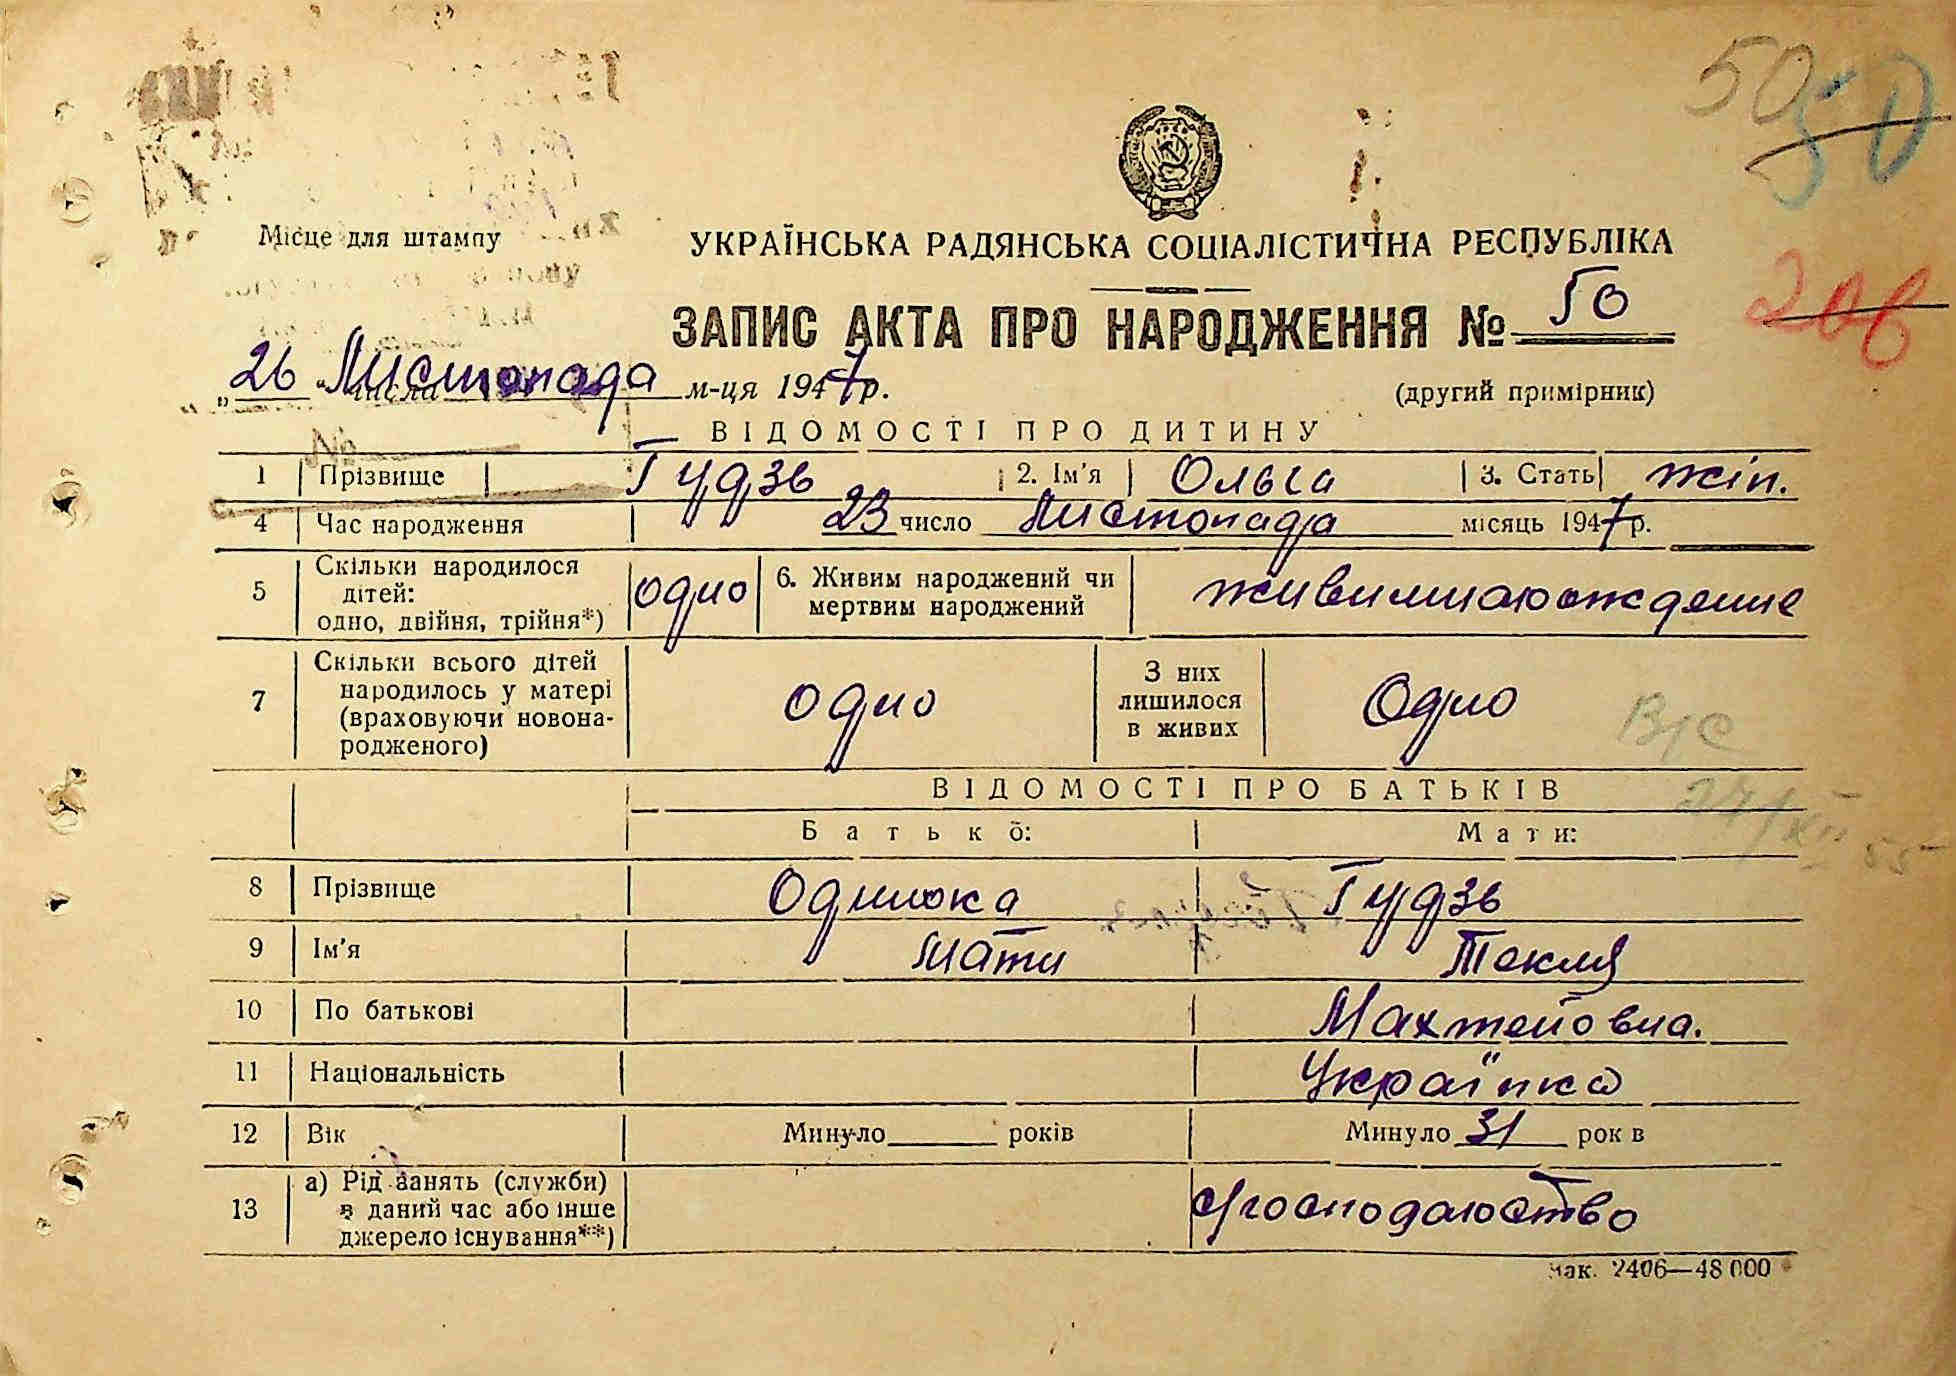 50 50
Місце для штампу
УКРАЇНСЬКА РАДЯНСЬКА СОЦІАЛІСТИЧНА РЕСПУБЛІКА
ЗАПИС АКТА ПРО НАРОДЖЕННЯ № 50
206
„ 26 " числа Листопада м-ця 1947 р.
(другий примірник)
№
ВІДОМОСТІ ПРО ДИТИНУ
1 Прізвище Гудзь 2. Ім'я Ольга 3. Стать жін.
4 Час народження 23 число Листопада місяць 1947 р.
5 Скільки народилося дітей: одно, двійня, трійня*) одно 6. Живим народжений чи мертвим народжений
7 Скільки всього дітей народилось у матері (враховуючи новонародженого) одно З них лишилося в живих Одно
В/с
24/XII 55
ВІДОМОСТІ ПРО БАТЬКІВ
Батько: Мати:
8 Прізвище Одинока Гудзь
9 Ім'я мати Текля
10 По батькові Махтейовна.
11 Національність Українка
12 Вік Минуло років Минуло 31 рок в
13 а) Рід занять (служби) в даний час або інше джерело існування**)
Зак. 2406—48 000